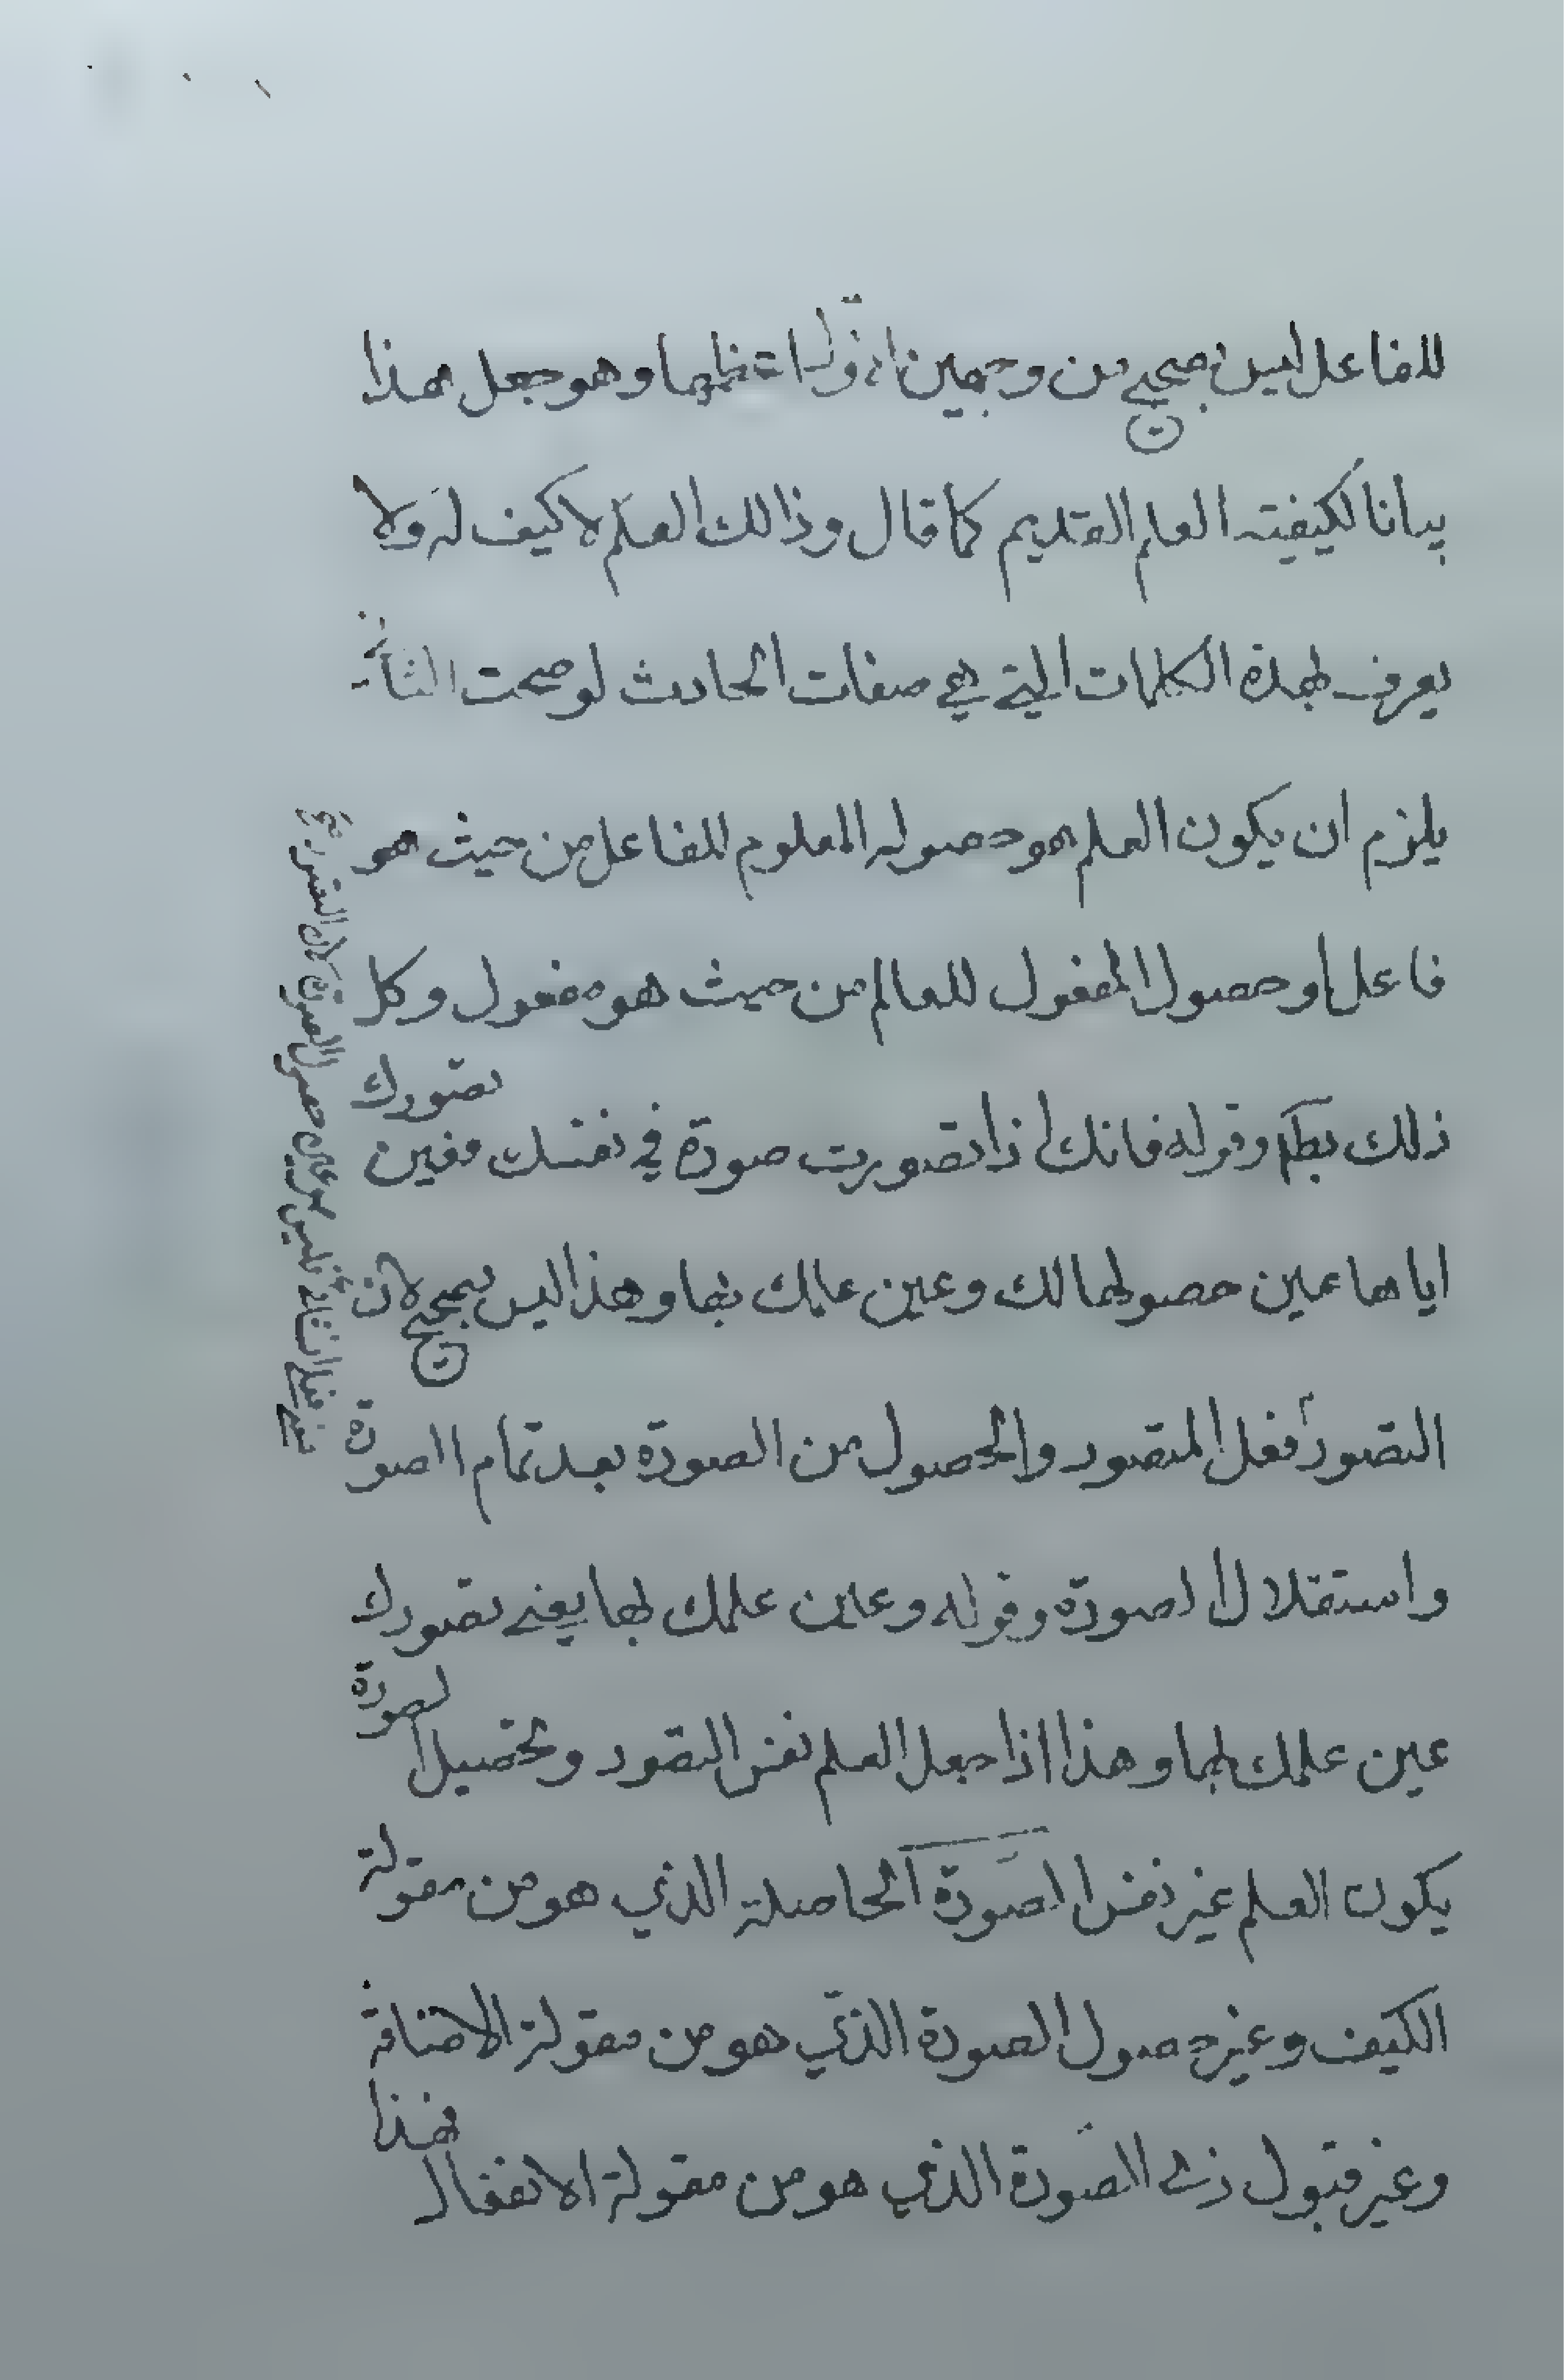 للفاعل ليس بصحيح من وجهين الاول اعظمهما وهو جعل هذا
بيانا لكيفيته العلم القديم كما قال وذالك العلم لا كيف له ولا
يعرف بهذه الكلمات التي هي صفات الحادث لو صحت الثاني
يلزم ان يكون العلم هو حصوله المعلوم للفاعل من حيث هو
فاعل او حصول المفعول للعالم من حيث هو مفعول وكل
ذلك بط وقوله فانك اذا تصورت صورة في نفسك فعين تصورك
اياها عين حصولها لك وعين علمك بها وهذا ليس بصحيح لان
التصور فعل المتصور والحصول من الصورة بعد تمام الصورة
واستقلال الصورة وقوله وعين علمك بها يعني تصورك
عين علمك بها وهذا اذا جعل العلم نفس التصور وتحصيل الصورة
يكون العلم غير نفس الصورة الحاصلة الذي هو من مقولة
الكيف وغير حصول الصورة الذي هو من مقولة الاضافة
وغير قبول ذي الصورة الذي هو من مقولة الانفعال فهذا